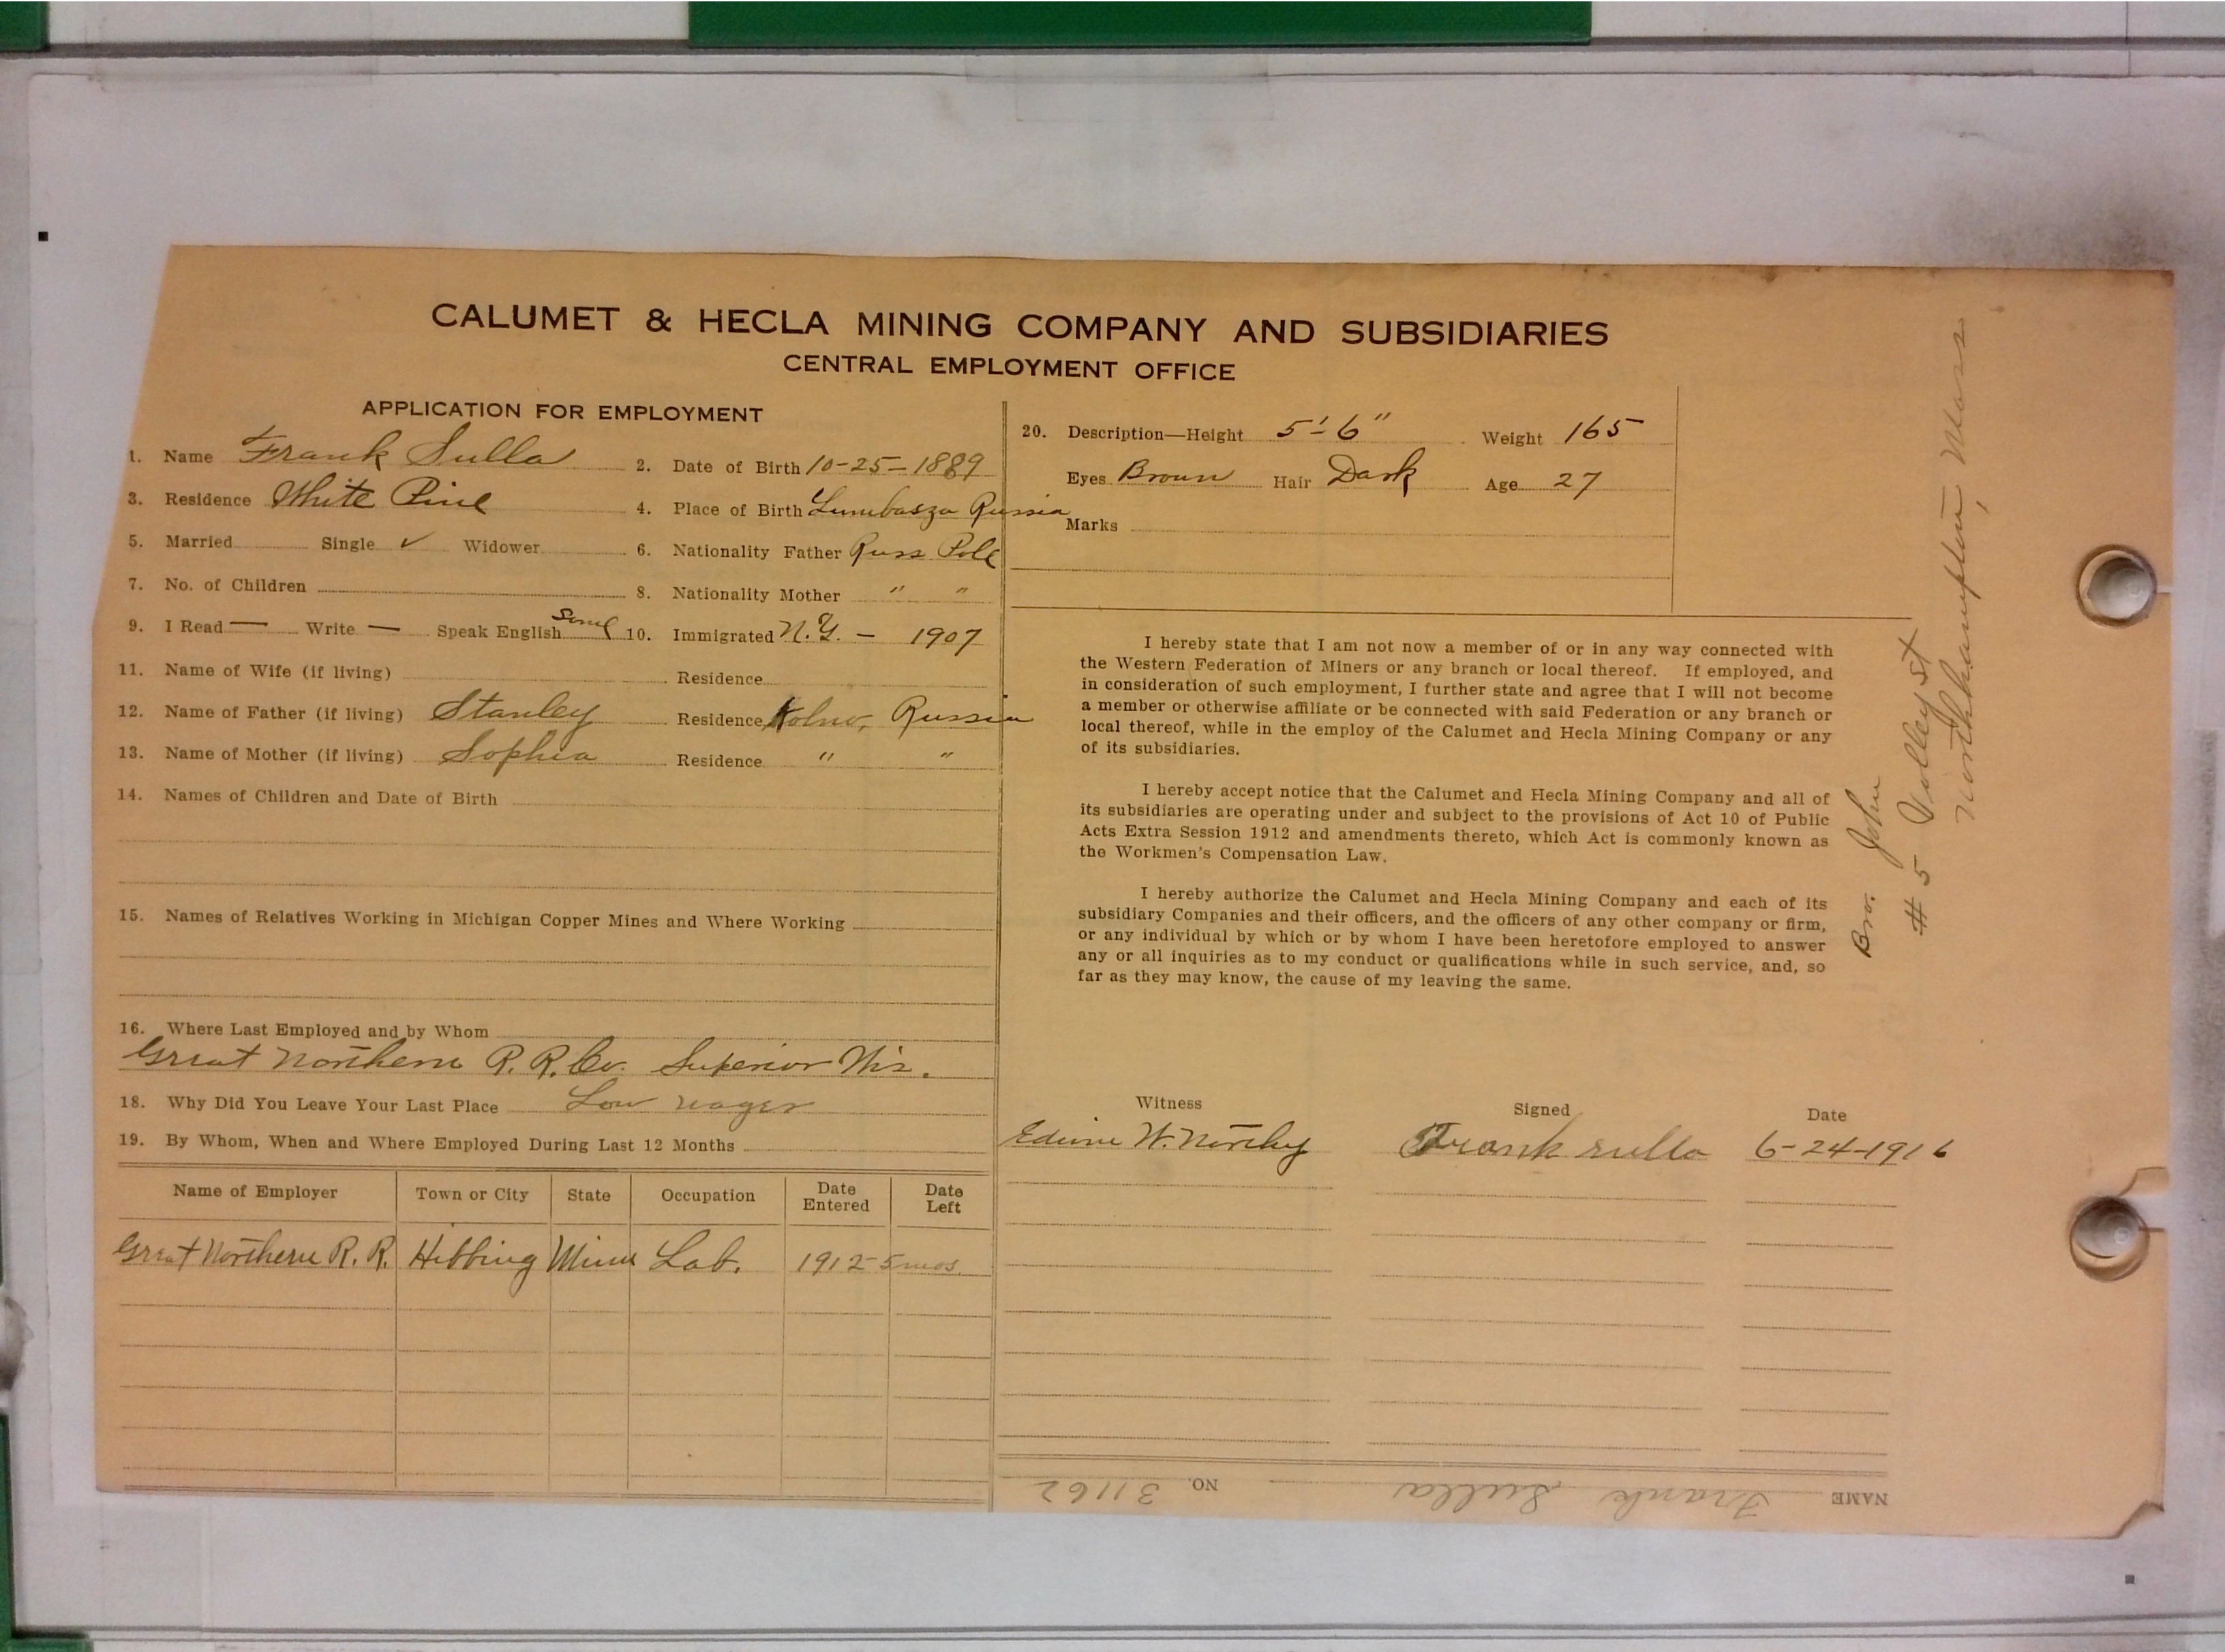 CALUMET & HECLA MINING COMPANY AND SUBSIDIARIES
CENTRAL EMPLOYMENT OFFICE
APPLICATION FOR EMPLOYMENT
1. Name Frank Sulla 2. Date of Birth 10-25-1889
3. Residence White Pine 4. Place of Birth Lumbasza Russia
5. Married Single ✓ Widower 6. Nationality Father Russ Pole
7. No. of Children 8. Nationality Mother " "
9. I Read — Write — Speak English Some 10. Immigrated N.Y. — 1907
11. Name of Wife (if living) Residence
12. Name of Father (if living) Stanley Residence Kolno, Russia
13. Name of Mother (if living) Sophia Residence " "
14. Names of Children and Date of Birth
15. Names of Relatives Working in Michigan Copper Mines and Where Working
16. Where Last Employed and by Whom
Great Northern R. R. Co. Superior Wis.
18. Why Did You Leave Your Last Place Low wages
19. By Whom, When and Where Employed During Last 12 Months
Name of Employer Town or City State Occupation Date Entered Date Left
Great Northern R. R. Hibbing Minn Lab. 1912-5mos.
20. Description—Height 5'-6" Weight 165
Eyes Brown Hair Dark Age 27
Marks
I hereby state that I am not now a member of or in any way connected with
the Western Federation of Miners or any branch or local thereof. If employed, and
in consideration of such employment, I further state and agree that I will not become
a member or otherwise affiliate or be connected with said Federation or any branch or
local thereof, while in the employ of the Calumet and Hecla Mining Company or any
of its subsidiaries.
I hereby accept notice that the Calumet and Hecla Mining Company and all of
its subsidiaries are operating under and subject to the provisions of Act 10 of Public
Acts Extra Session 1912 and amendments thereto, which Act is commonly known as
the Workmen's Compensation Law.
I hereby authorize the Calumet and Hecla Mining Company and each of its
subsidiary Companies and their officers, and the officers of any other company or firm,
or any individual by which or by whom I have been heretofore employed to answer
any or all inquiries as to my conduct or qualifications while in such service, and, so
far as they may know, the cause of my leaving the same.
Witness Signed Date
Edwin W. Northey Frank sulla 6-24-1916
NAME Frank Sulla NO. 31162
Bro. John
# 5 Valley St
Northhampton, Mass